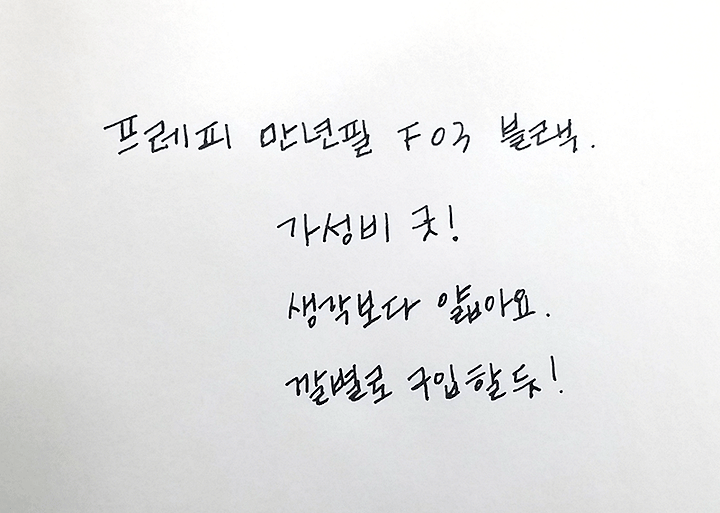 프레피 만년필 F03 블랙.
가성비 굿!
생각보다 얇아요.
깔별로 구입할듯!